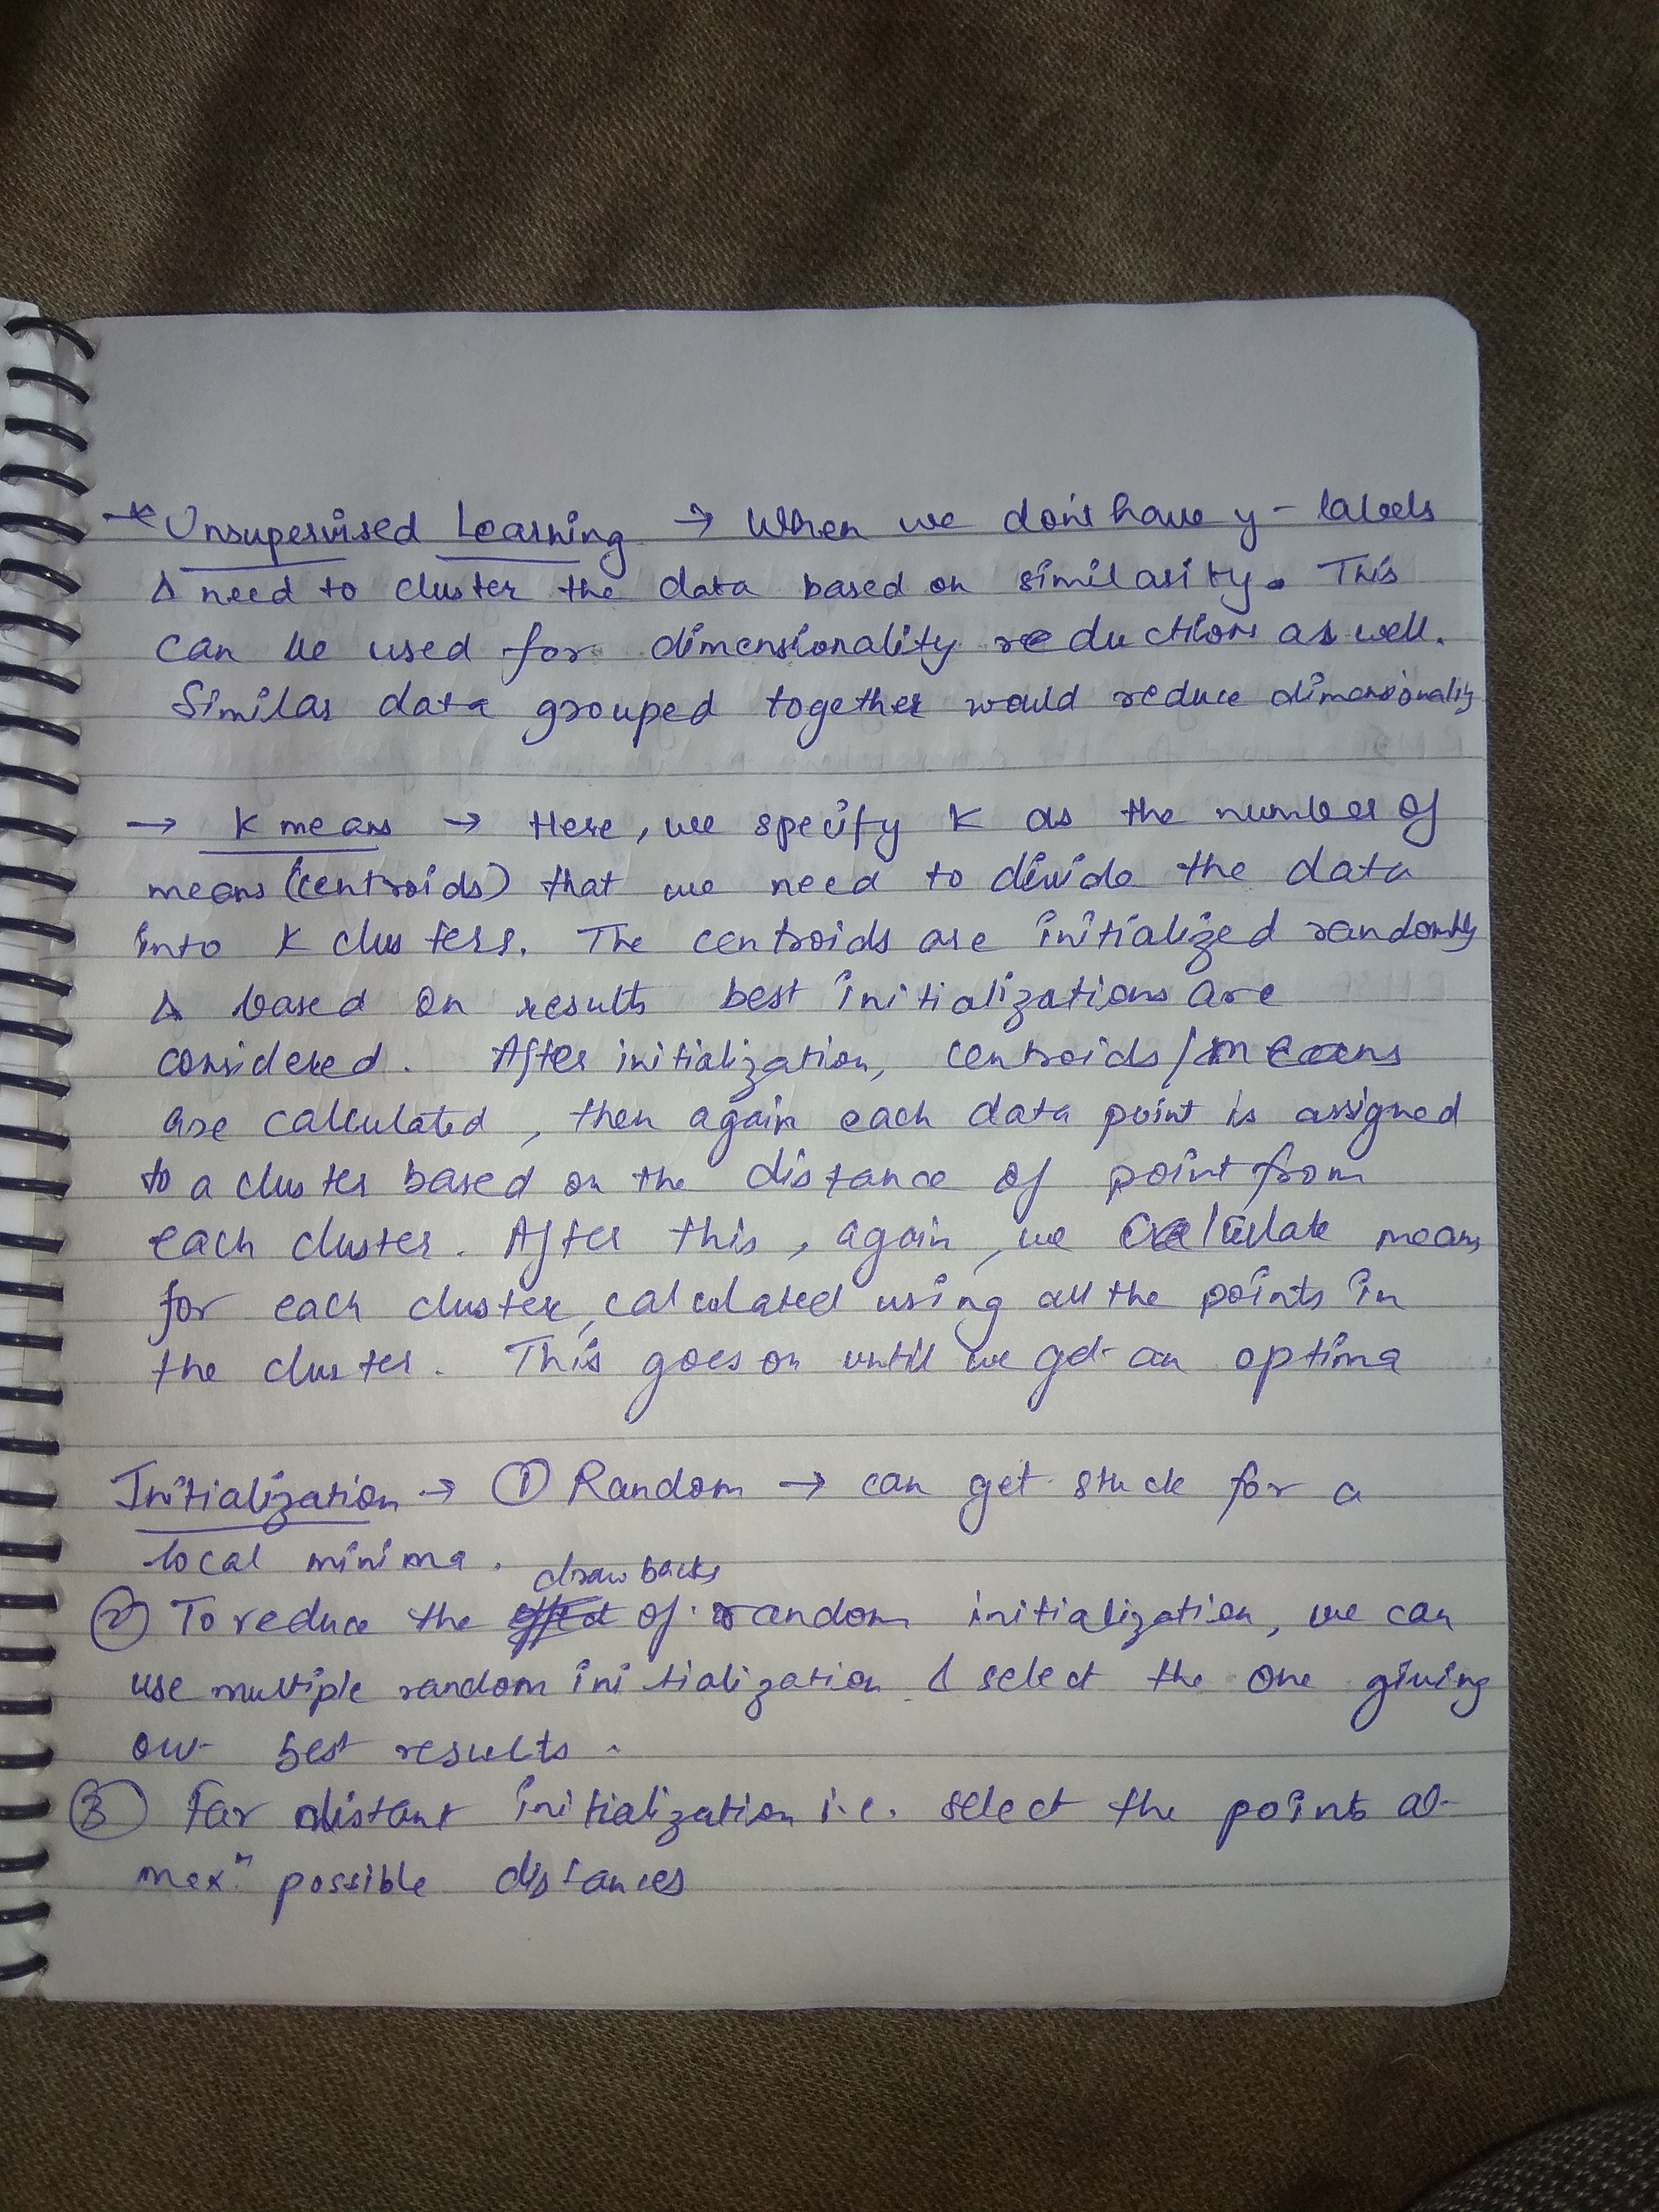 * Unsupervised Learning → When we dont have y - labels
& need to cluster the data based on similarity. This
can be used for dimensionality reduction as well.
Similar data grouped together would reduce dimensionality
→ K means → Here, we specify K as the number of
means (centroids) that we need to divide the data
into K clusters. The centroids are initialized randomly
& based on results best initializations are
considered. After initialization, centroids/means
are calculated, then again each data point is assigned
to a cluster based on the distance of point from
each cluster. After this, again, we calculate means
for each cluster, calculated using all the points in
the cluster. This goes on until we get an optima
Initialization → ① Random → can get stuck for a
local minima.
drawbacks
② To reduce the effect of random initialization, we can
use multiple random initialization & select the one giving
our best results.
③ Far distant initialization i.e. select the points at
maxm possible distances